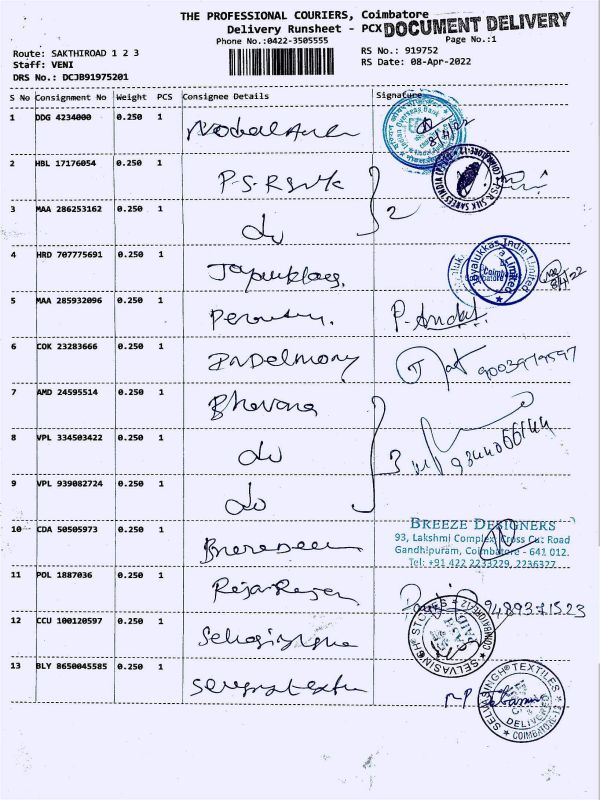 THE PROFESSIONAL COURIERS, Coimbatore
Delivery Runsheet - PCX DOCUMENT DELIVERY
Phone No.:0422-3505555 Page No.:1
Route: SAKTHIROAD 1 2 3 RS No.: 919752
Staff: VENI RS Date: 08-Apr-2022
DRS No.: DCJB91975201
S No Consignment No Weight PCS Consignee Details Signature
1 DDG 4234000 0.250 1
8/4/22
2 HBL 17176054 0.250 1 P.S.R Silk
3 MAA 286253162 0.250 1 do 2
4 HRD 707775691 0.250 1
Joyalukkas India Limited
Coimbatore
8/4/22
5 MAA 285932096 0.250 1 P. Andal
6 COK 23283666 0.250 1 9003979597
7 AMD 24595514 0.250 1 Bhavana
8 VPL 334503422 0.250 1 do 3 9344066144
9 VPL 939082724 0.250 1 do
10 CDA 50505973 0.250 1
BREEZE DESIGNERS
93, Lakshmi Complex, Cross Cut Road
Gandhipuram, Coimbatore - 641 012.
Tel: +91 422 2233229, 2236327
11 POL 1887036 0.250 1 9489371523
12 CCU 100120597 0.250 1
SELVASINGH STORES
COIMBATORE-12
13 BLY 8650045585 0.250 1
SELVASINGH TEXTILES
DELIVERED
COIMBATORE-12